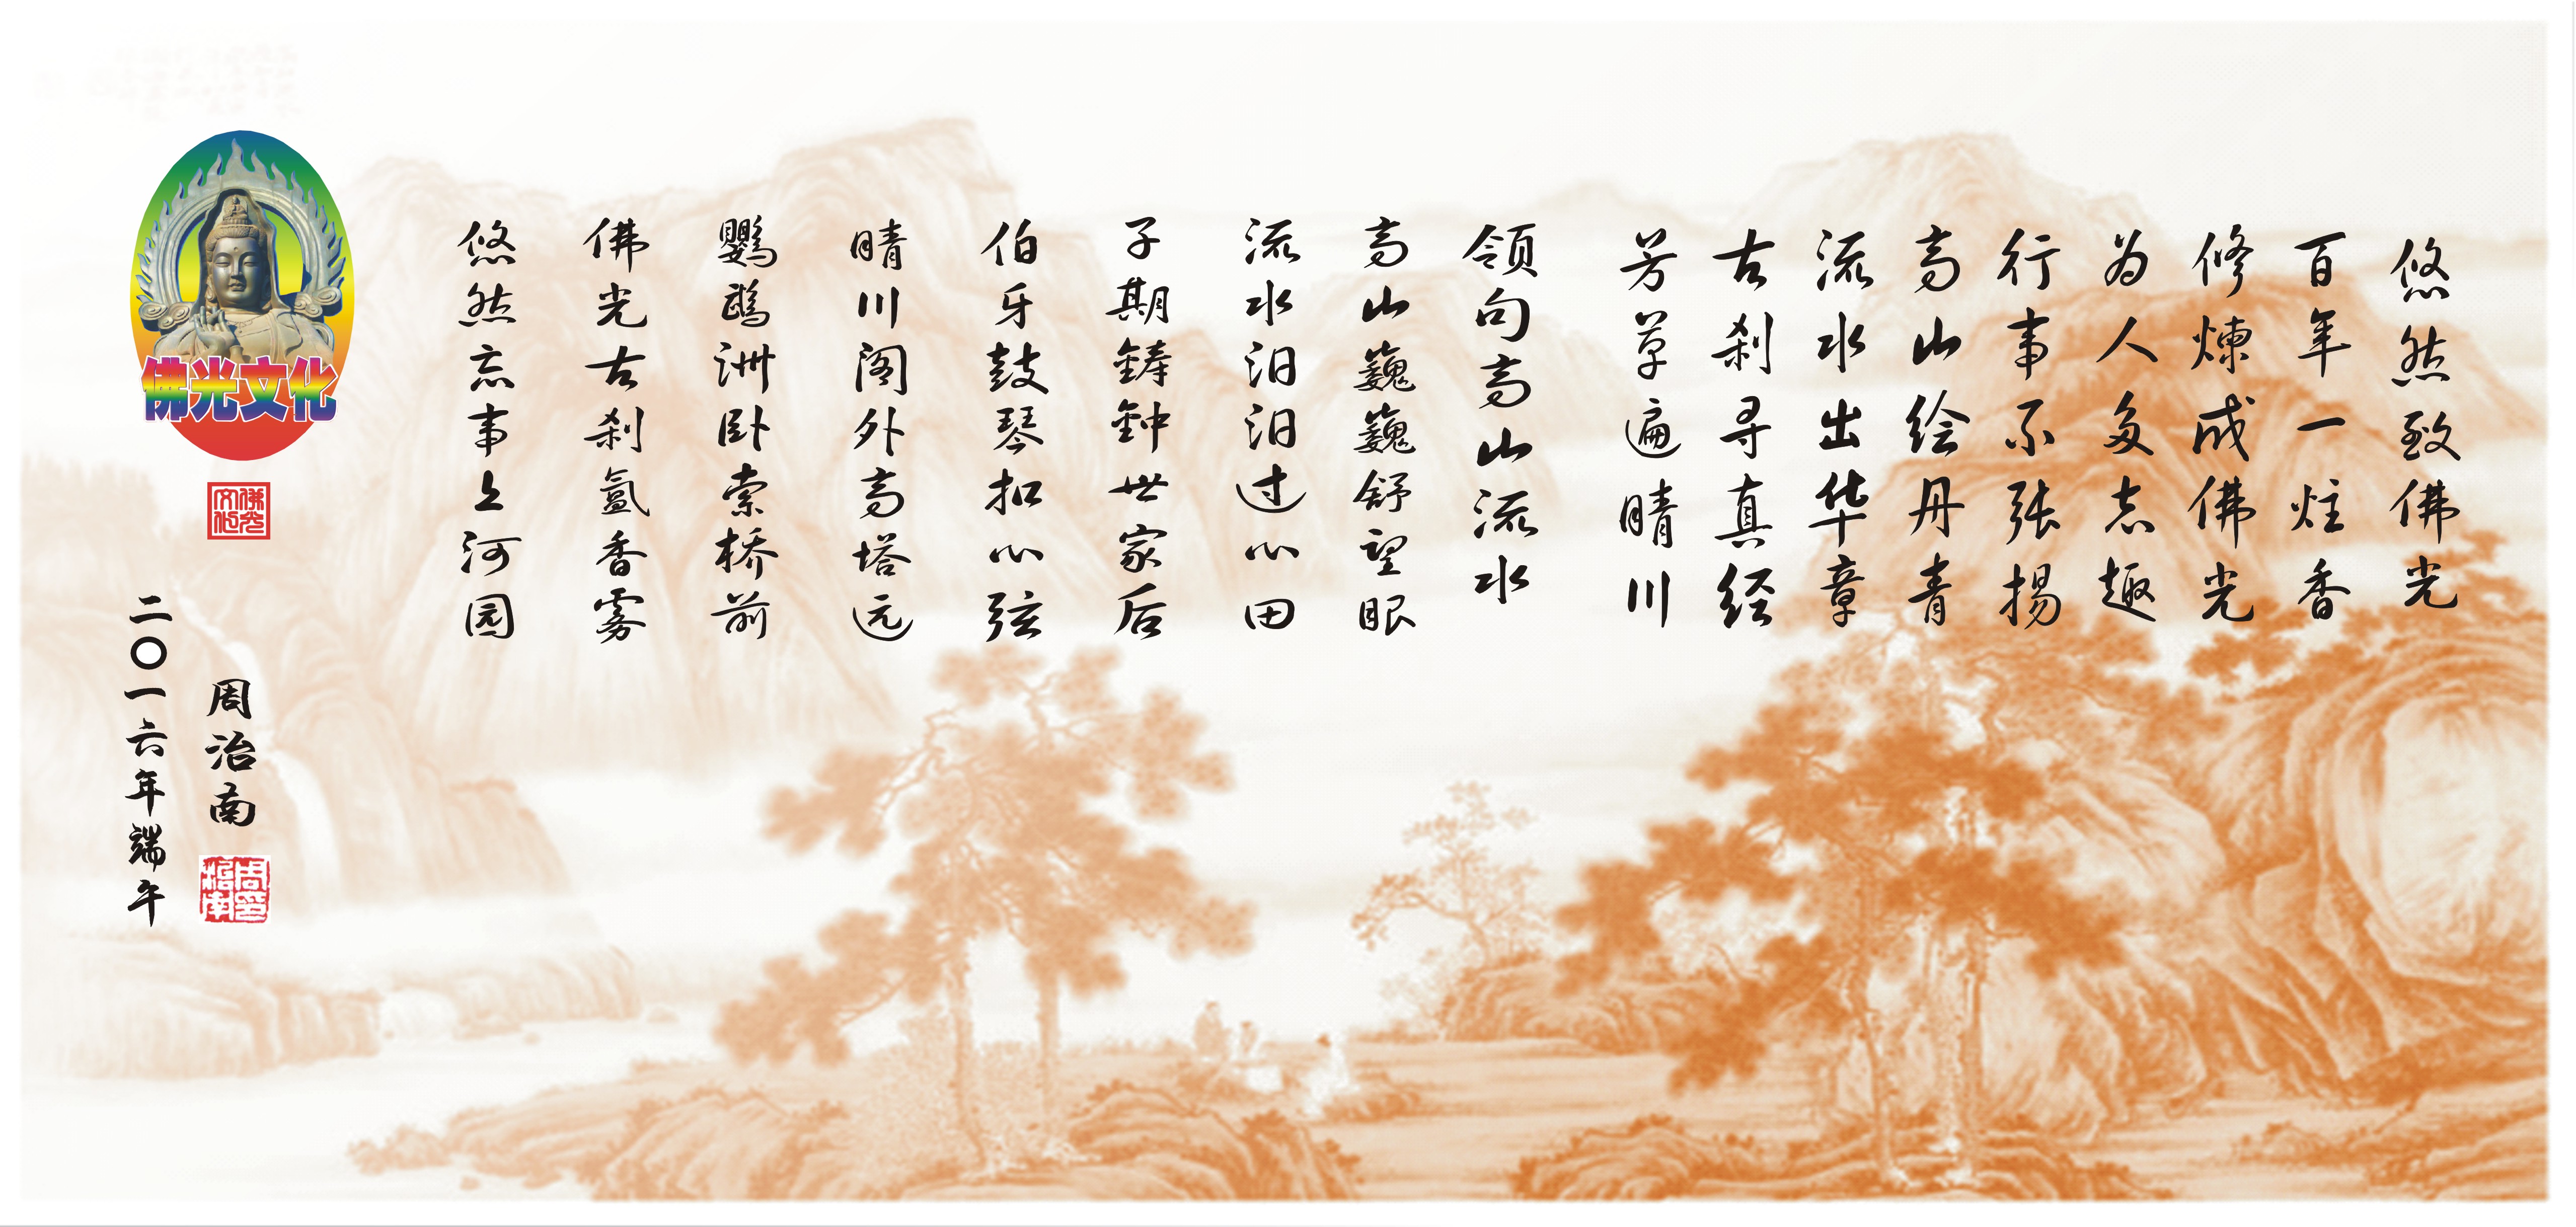 悠然致佛光
百年一炷香
修煉成佛光
为人多志趣
行事不张揚
高山绘丹青
流水出华章
古刹寻真经
芳草遍晴川
领句高山流水
高山巍巍舒望眼
流水汩汩过心田
子期鋳鈡世家后
伯牙鼓琴扣心弦
晴川阁外高塔远
鹦鹉洲卧索桥前
佛光古刹氩香雾
悠然忘事上河园
佛光文化
佛光文化
周治南
周治南印
二〇一六年端午